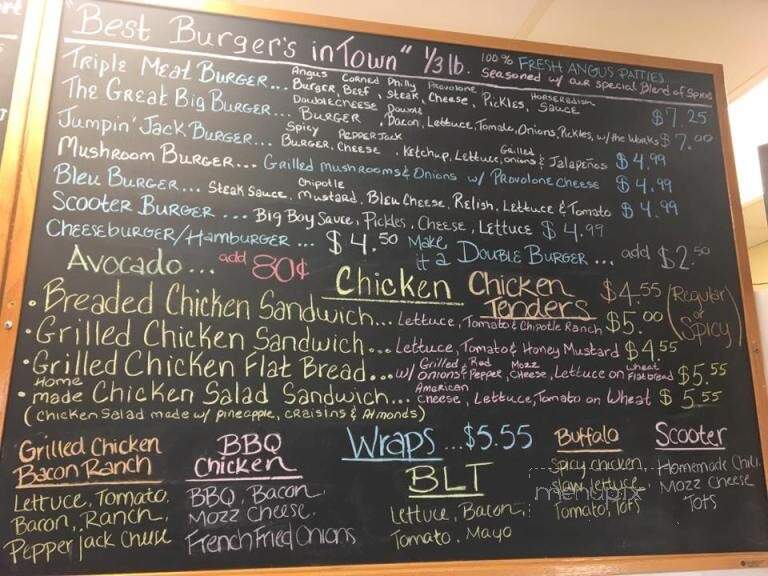 "Best Burger's in Town" 1/3 lb. 100% FRESH ANGUS PATTIES
Seasoned w/ our special Blend of Spices
Triple Meat Burger... Angus Burger, Corned Beef, Philly Steak, Provolone Cheese, Pickles, Horseradish Sauce $7.25
The Great Big Burger... Doublecheese Burger, Double Bacon, Lettuce, Tomato, Onions, Pickles, w/ the Works $7.00
Jumpin' Jack Burger... Spicy Burger, Pepper Jack Cheese, Ketchup, Lettuce, Grilled onions & Jalapeños $4.99
Mushroom Burger... Grilled mushrooms & Onions w/ Provolone Cheese $4.99
Bleu Burger... Steak Sauce, Chipotle Mustard, Bleu Cheese, Relish, Lettuce & Tomato $4.99
Scooter Burger ... Big Boy Sauce, Pickles, Cheese, Lettuce $4.99
Cheeseburger/Hamburger ... $4.50 Make it a Double Burger ... add $2.50
Avocado ... add 80¢
Chicken
Chicken Tenders $4.55 (Regular or Spicy)
• Breaded Chicken Sandwich... Lettuce, Tomato & Chipotle Ranch $5.00
• Grilled Chicken Sandwich... Lettuce, Tomato & Honey Mustard $4.55
• Grilled Chicken Flat Bread... w/ Grilled onions & Red Pepper, Mozz Cheese, Lettuce on wheat Flatbread $5.55
• Home made Chicken Salad Sandwich... American cheese, Lettuce, Tomato on Wheat $5.55
(Chicken Salad made w/ pineapple, craisins & Almonds)
Wraps ...$5.55
Grilled Chicken
Bacon Ranch
Lettuce, Tomato,
Bacon, Ranch,
Pepper jack cheese
BBQ
Chicken
BBQ, Bacon,
Mozz Cheese,
French Fried Onions
BLT
Lettuce, Bacon,
Tomato, Mayo
Buffalo
Spicy chicken,
slaw, lettuce,
Tomato, Tots
Scooter
Homemade Chili,
Mozz Cheese
Tots
menupix